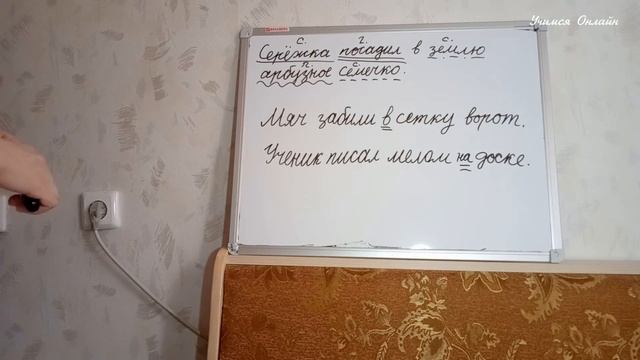 Учимся Онлайн
с. г. с.
Серёжка посадил в землю
п. с.
арбузное семечко.
Мяч забили в сетку ворот.
Ученик писал мелом на доске.